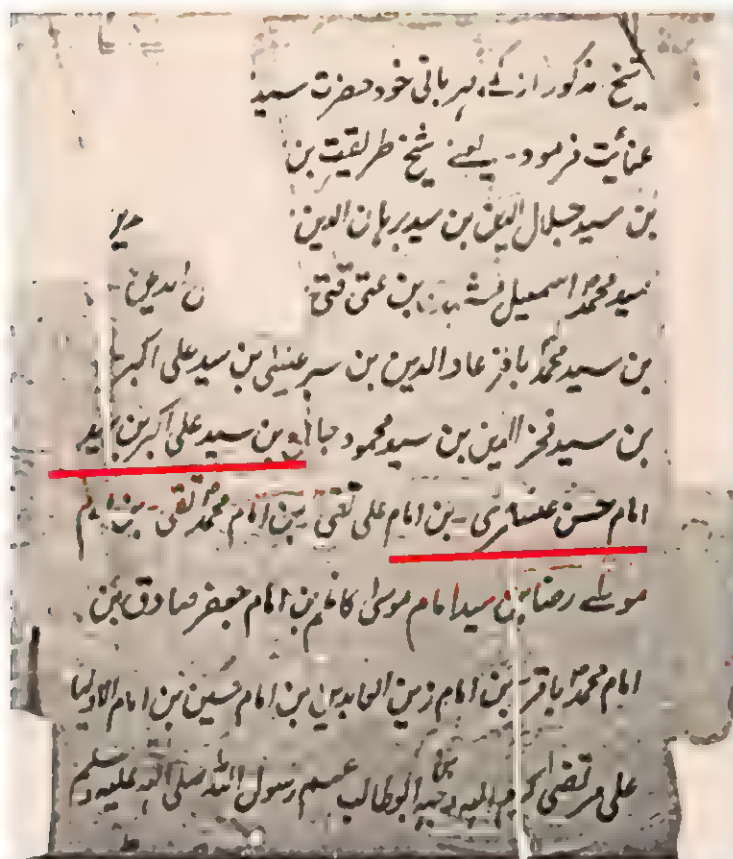 شیخ مذکور از کے مہربانی خود حضرت سید
عنائت فرمود - یعنے شیخ طریقت بن
بن سید جلال الدین بن سید برہان الدین
سید محمد اسمعیل بن
بن سید محمد باقر عماد الدین بن بن سید علی اکبر
بن سید فخر الدین بن سید محمود بن سید علی اکبر بن سید
امام حسن عسکری - بن امام علی نقی بن امام محمد تقی - بن امام
موسلے رضا بن سید امام موسیٰ کاظم بن امام جعفر صادق بن
امام محمد باقر بن امام زین العابدین بن امام حسین بن امام الاولیا
علی مرتضیٰ بن ابوطالب عم رسول اللہ صلی اللہ علیہ وسلم